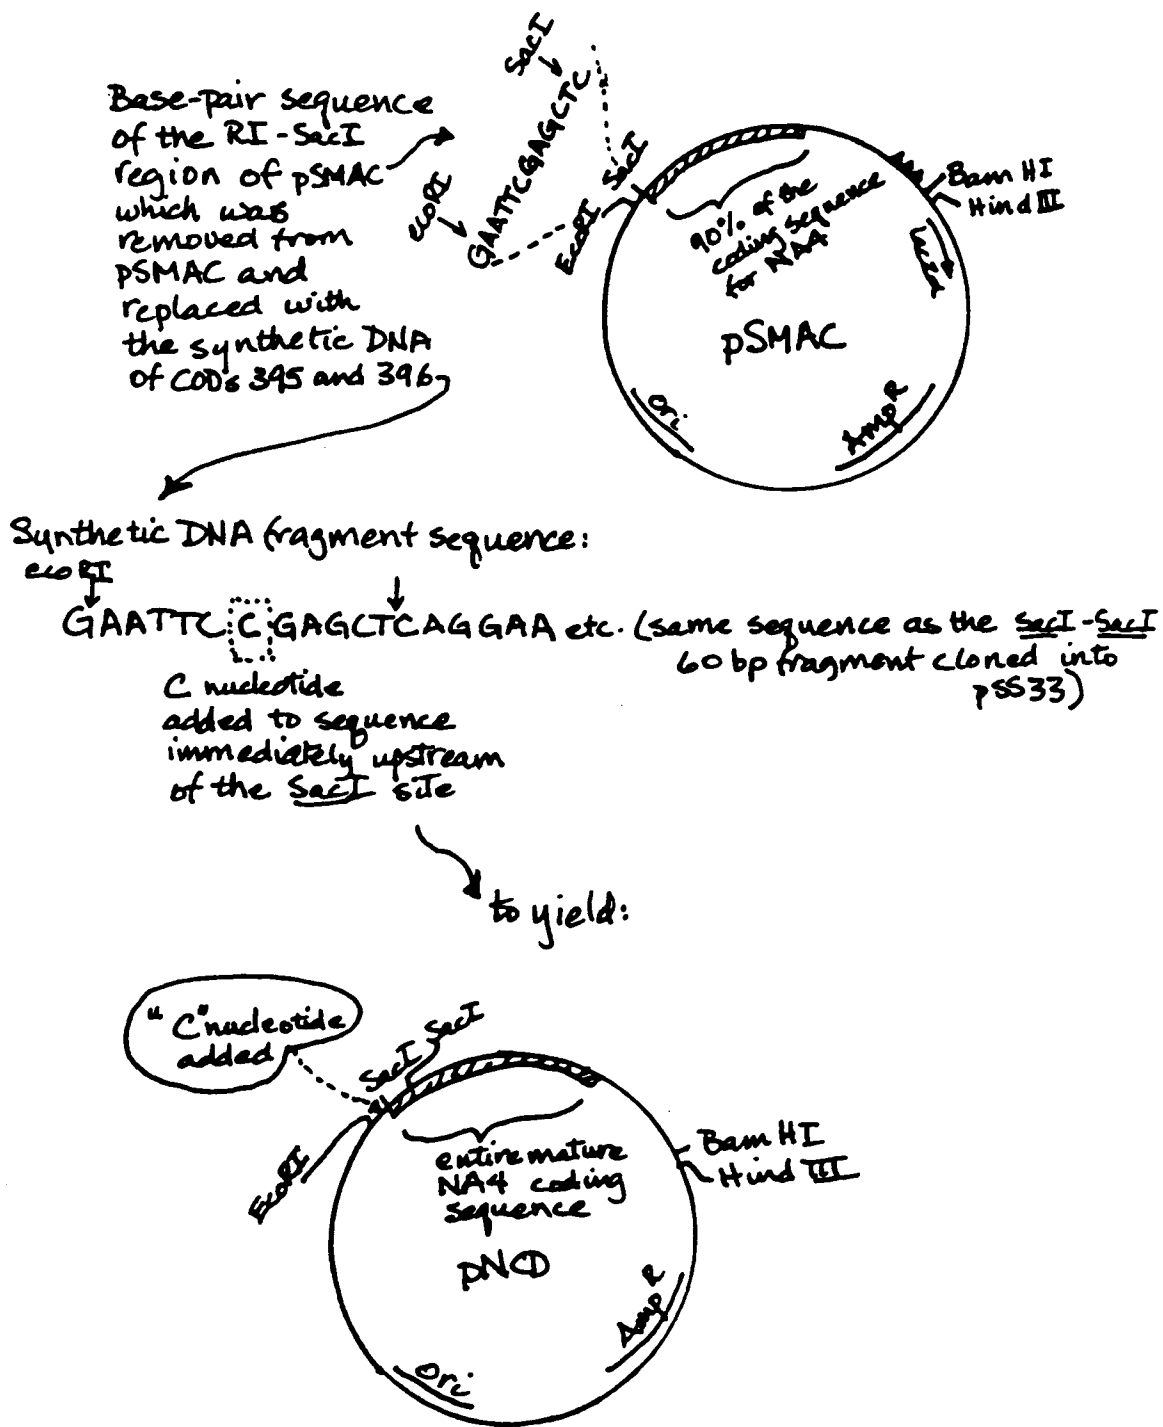 Base-pair sequence
of the RI-SacI
region of pSMAC
which was
removed from
pSMAC and
replaced with
the synthetic DNA
of CODs 395 and 396
SacI
GAATTCGAGCTC
ecoRI
EcoRI
SacI
90% of the
coding sequence
for NA4
Bam HI
Hind III
lacZα
pSMAC
Ori
AmpR
Synthetic DNA fragment sequence:
ecoRI
GAATTC C GAGCTCAGGAA etc. (same sequence as the SacI-SacI
60 bp fragment cloned into
pSS33)
C nucleotide
added to sequence
immediately upstream
of the SacI site
to yield:
"C" nucleotide
added
SacI
SacI
EcoRI
entire mature
NA4 coding
sequence
Bam HI
Hind III
pNCD
AmpR
Ori